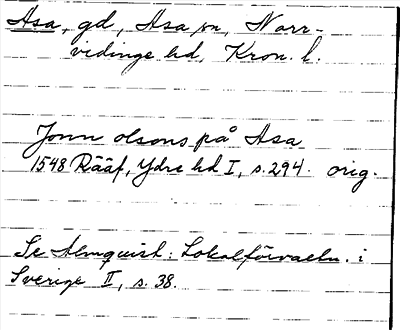 Asa, gd, Asa sn, Norr-
vidinge hd, Kron. l.
Jonn olsons på Asa
1548 Rääf, Ydre hd I, s. 294. orig.
Se Almquist: Lokalförvaltn. i
Sverige II, s. 38.